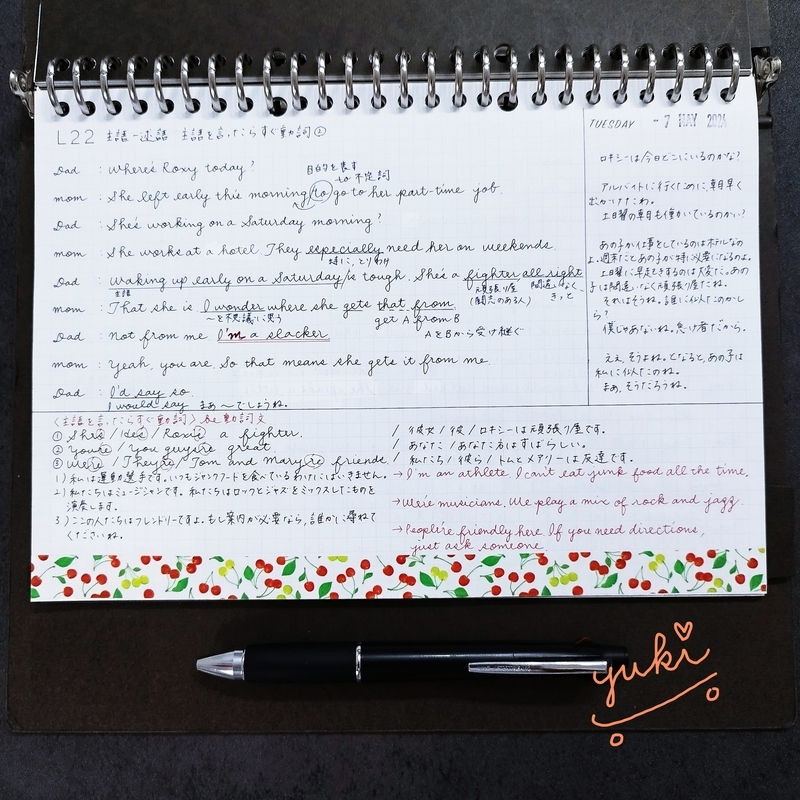 L22 主語-述語 主語を言ったらすぐ動詞②
TUESDAY - 7 MAY 2024
Dad : Where's Roxy today?
目的を表す
to 不定詞
mom : She left early this morning to go to her part-time job.
Dad : She's working on a Saturday morning?
mom : She works at a hotel. They especially need her on weekends.
特に、とりわけ
Dad : Waking up early on a Saturday is tough. She's a fighter all right.
主語
頑張り屋
(闘志のある人)
間違いなく、
きっと
mom : That she is. I wonder where she gets that from.
〜を不思議に思う
get A from B
AをBから受け継ぐ
Dad : Not from me. I'm a slacker.
mom : Yeah, you are. So that means she gets it from me.
Dad : I'd say so.
I would say まぁ〜でしょうね。
ロキシーは今日どこにいるのかな?
アルバイトに行くために、朝早く
出かけたわ。
土曜日の朝も働いているのかい?
あの子が仕事をしているのはホテルなの
よ。週末だとあの子が特に必要になるのよ。
土曜日に早起きするのは大変だ。あの
子は間違いなく頑張り屋だね。
それはそうね。誰に似たのかし
ら?
僕じゃあないね。怠け者だから。
ええ、そうよね。となると、あの子は
私に似たのね。
まぁ、そうだろうね。
〈主語を言ったらすぐ動詞〉 be動詞文
① She's / He's / Roxy's a fighter.
/ 彼女 / 彼 / ロキシーは頑張り屋です。
② You're / You guys're great.
/ あなた / あなた方はすばらしい。
③ We're / They're / Tom and Mary're friends.
/ 私たち / 彼ら / トムとメアリーは友達です。
1) 私は運動選手です。いつもジャンクフードを食べているわけにはいきません。
→ I'm an athlete. I can't eat junk food all the time.
2) 私たちはミュージシャンです。私たちはロックとジャズをミックスしたものを
演奏します。
→ We're musicians. We play a mix of rock and jazz.
3) ここの人たちはフレンドリーですよ。もし案内が必要なら、誰かに尋ねて
くださいね。
→ People're friendly here. If you need directions,
just ask someone.
yuki